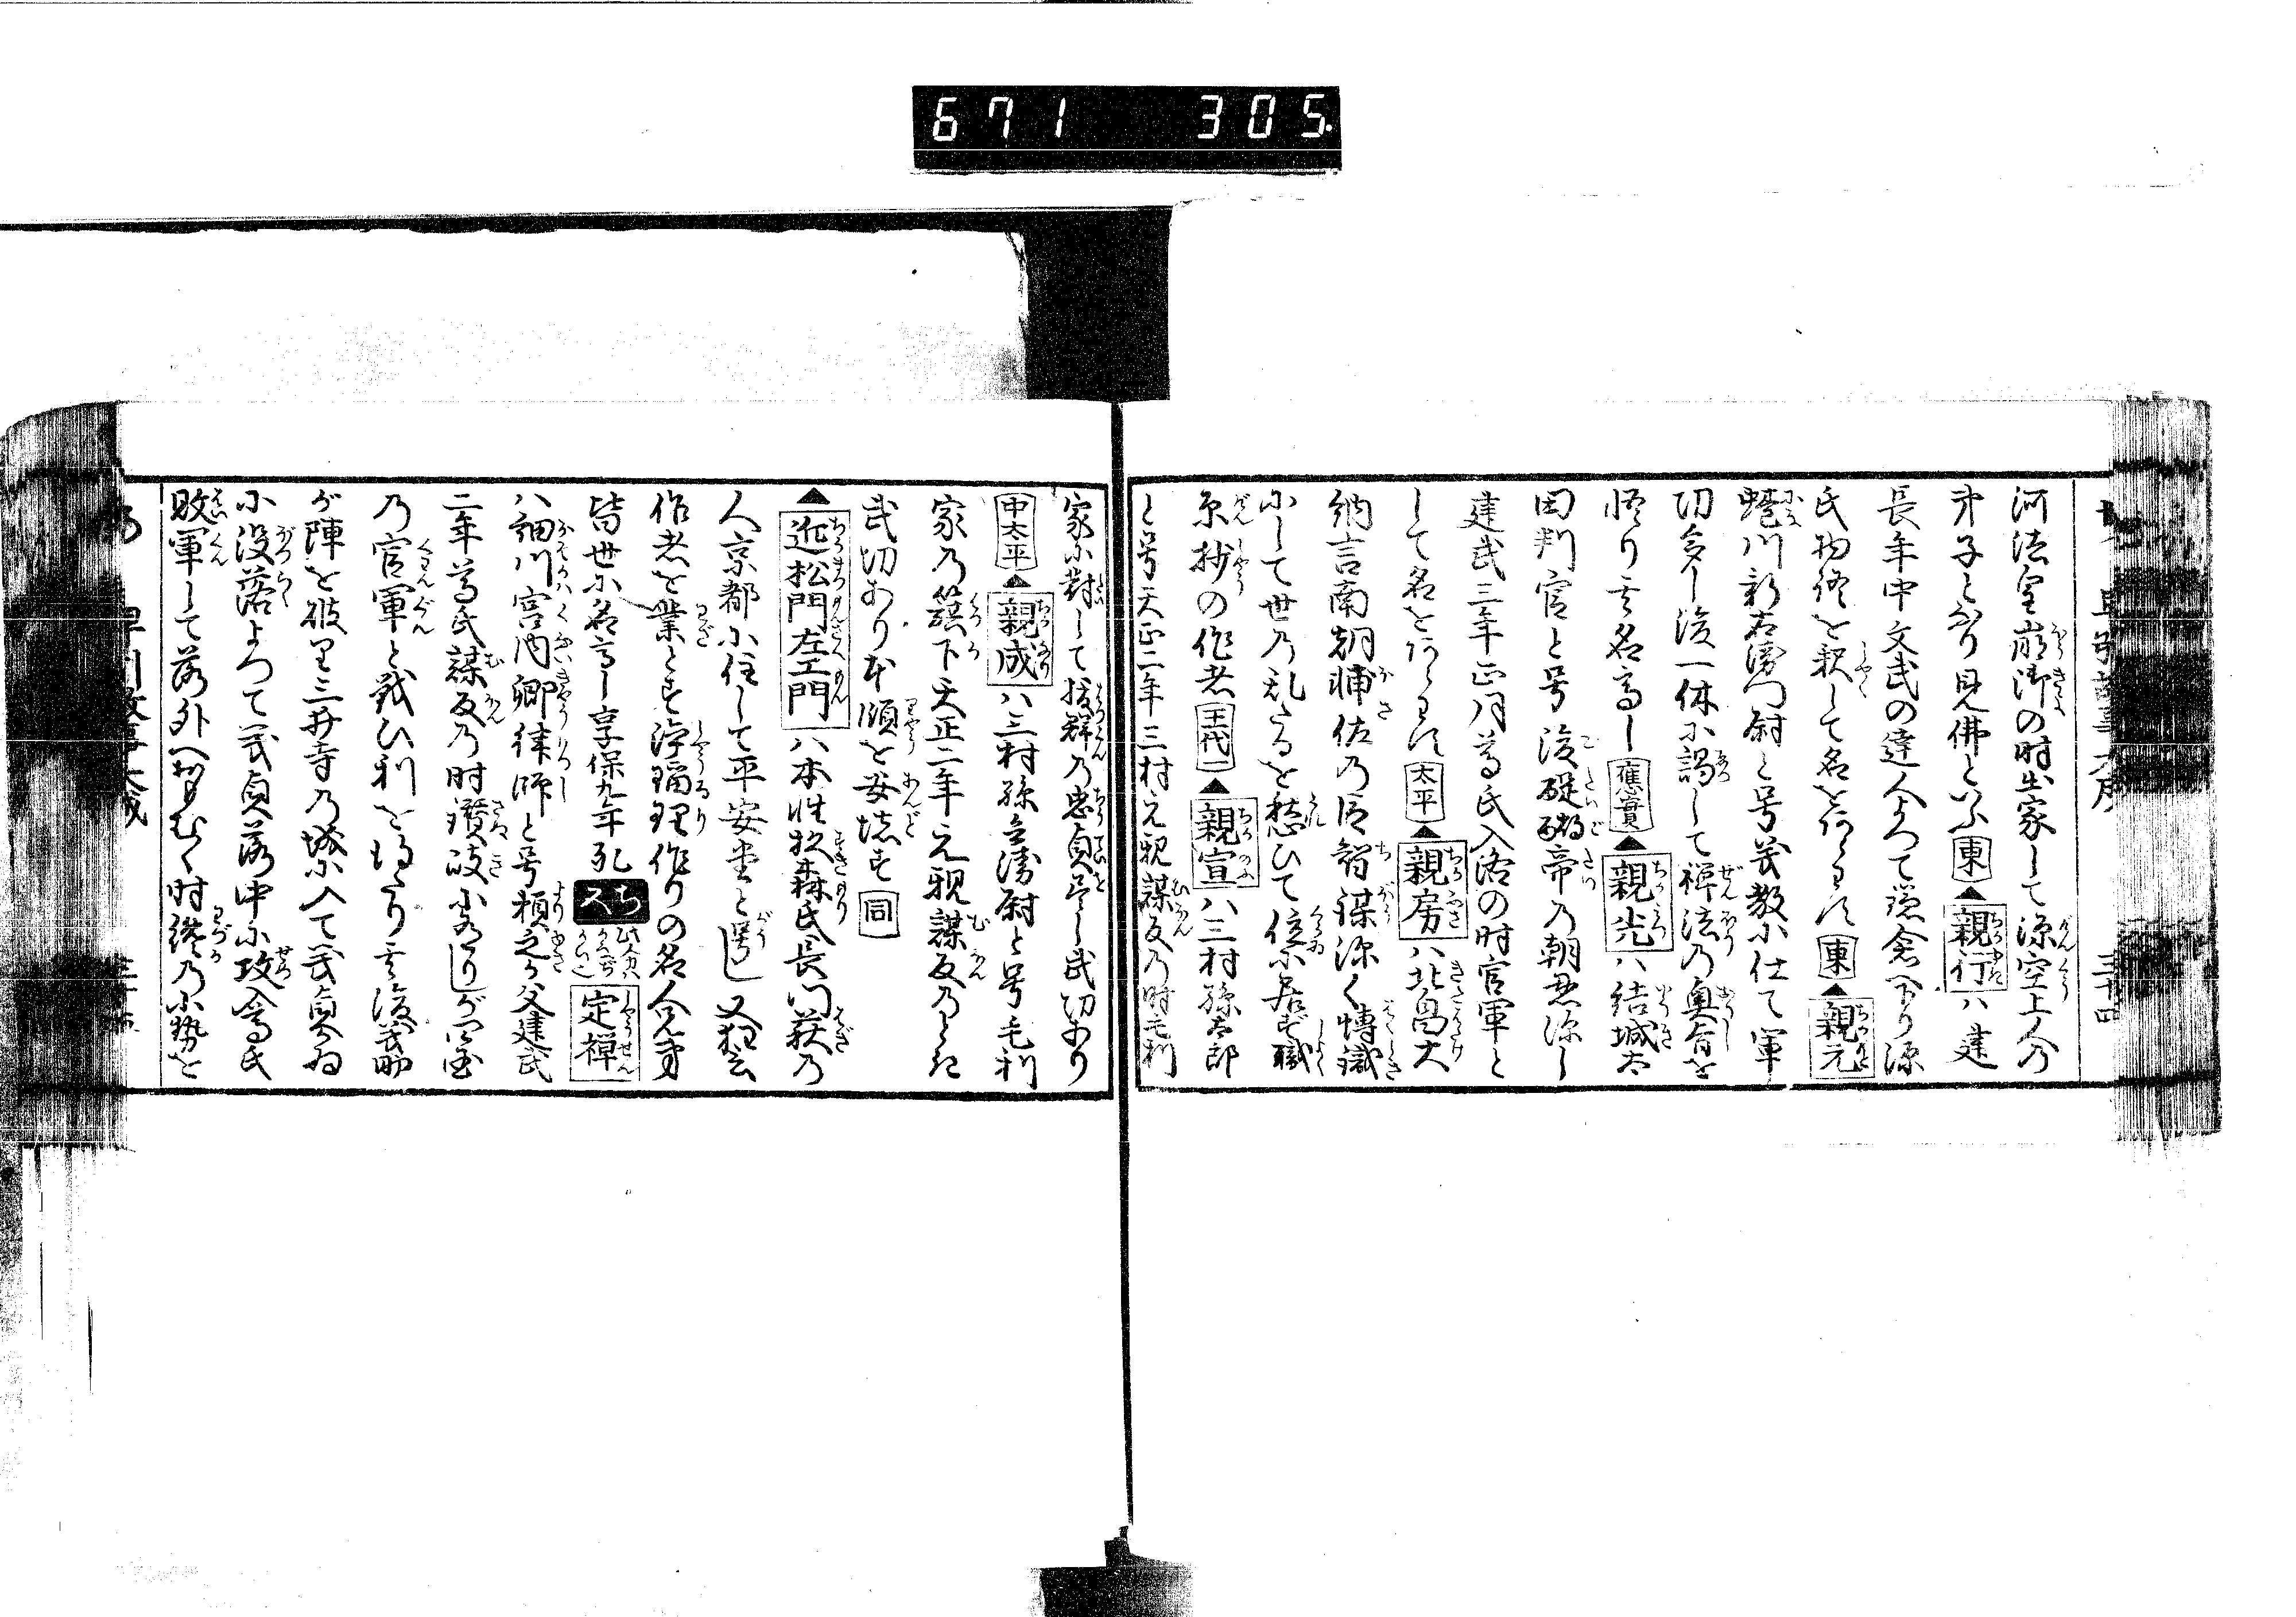 671 305
河法皇崩御の時出家して源空上人の
弟子となり見佛といふ 東 ▲親行ハ建
長年中文武の達人よつて鎌倉へ下り源
氏物語を釈して名をあらわす 東 ▲親元
蜷川新右衛門尉と号義教に仕て軍
切多し後一休に謁して禅法の奥旨を
悟り其名高し 應實 ▲親光ハ結城太
田判官と号後醍醐帝乃朝恩深し
建武三年正月尊氏入洛の时官軍と
して名をあらわす 太平 ▲親房ハ北畠大
納言南朝補佐乃臣智謀深く博識
にして世乃乱るるを愁ひて位に居ず職
原抄の作者 王代一 ▲親宣ハ三村孫太郎
と号天正二年三村元親謀反乃時毛利
家に對して抜群乃忠貞を尽し武切あり
中太平 ▲親成ハ三村孫兵衛尉と号毛利
家乃籏下天正二年元親謀反乃とき
武切あり本領を安堵す 同
▲近松門左エ門ハ本性杦森氏長門萩乃
人京都に住して平安堂と号し又狂言
作者を業とす浄瑠理作りの名人兄弟
皆世に名高し享保九年死
定禅
ハ細川宮内卿律師と号頼之の父建武
二年尊氏謀反乃时讃岐におこりが四国
乃官軍と戦ひ利を得たり其後義助
が陣を破り三井寺乃城に入て義貞の為
に没落よつて義貞洛中に攻入尊氏
敗軍して落外へおもむく时纔乃小勢を